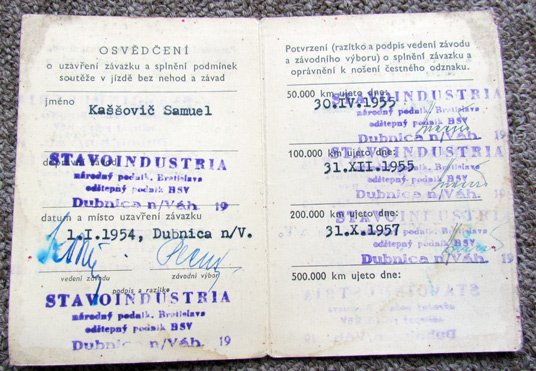 OSVĚDČENÍ
o uzavření závazku a splnění podmínek
soutěže v jízdě bez nehod a závad
jméno
Kaššovič Samuel
STAVOINDUSTRIA
národný podnik. Bratislava
odštepný podnik BSV
Dubnica n/Váh. 19
datum a místo uzavření závazku
1.I 1954, Dubnica n/V.
vedení závodu
závodní výbor
podpis a razítko
STAVOINDUSTRIA
národný podnik. Bratislava
odštepný podnik BSV
Dubnica n/Váh. 19
Potvrzení (razítko a podpis vedení závodu
a závodního výboru) o splnění závazku a
oprávnění k nošení čestného odznaku.
50.000 km ujeto dne:
30.IV.1955
STAVOINDUSTRIA
národný podnik. Bratislava
odštepný podnik BSV
Dubnica n/Váh.
100.000 km ujeto dne:
STAVOINDUSTRIA
31.XII.1955
národný podnik. Bratislava
odštepný podnik BSV
Dubnica n/Váh.
200.000 km ujeto dne:
STAVOINDUSTRIA
31.X.1957
národný podnik. Bratislava
odštepný podnik BSV
Dubnica n/Váh.
500.000 km ujeto dne: